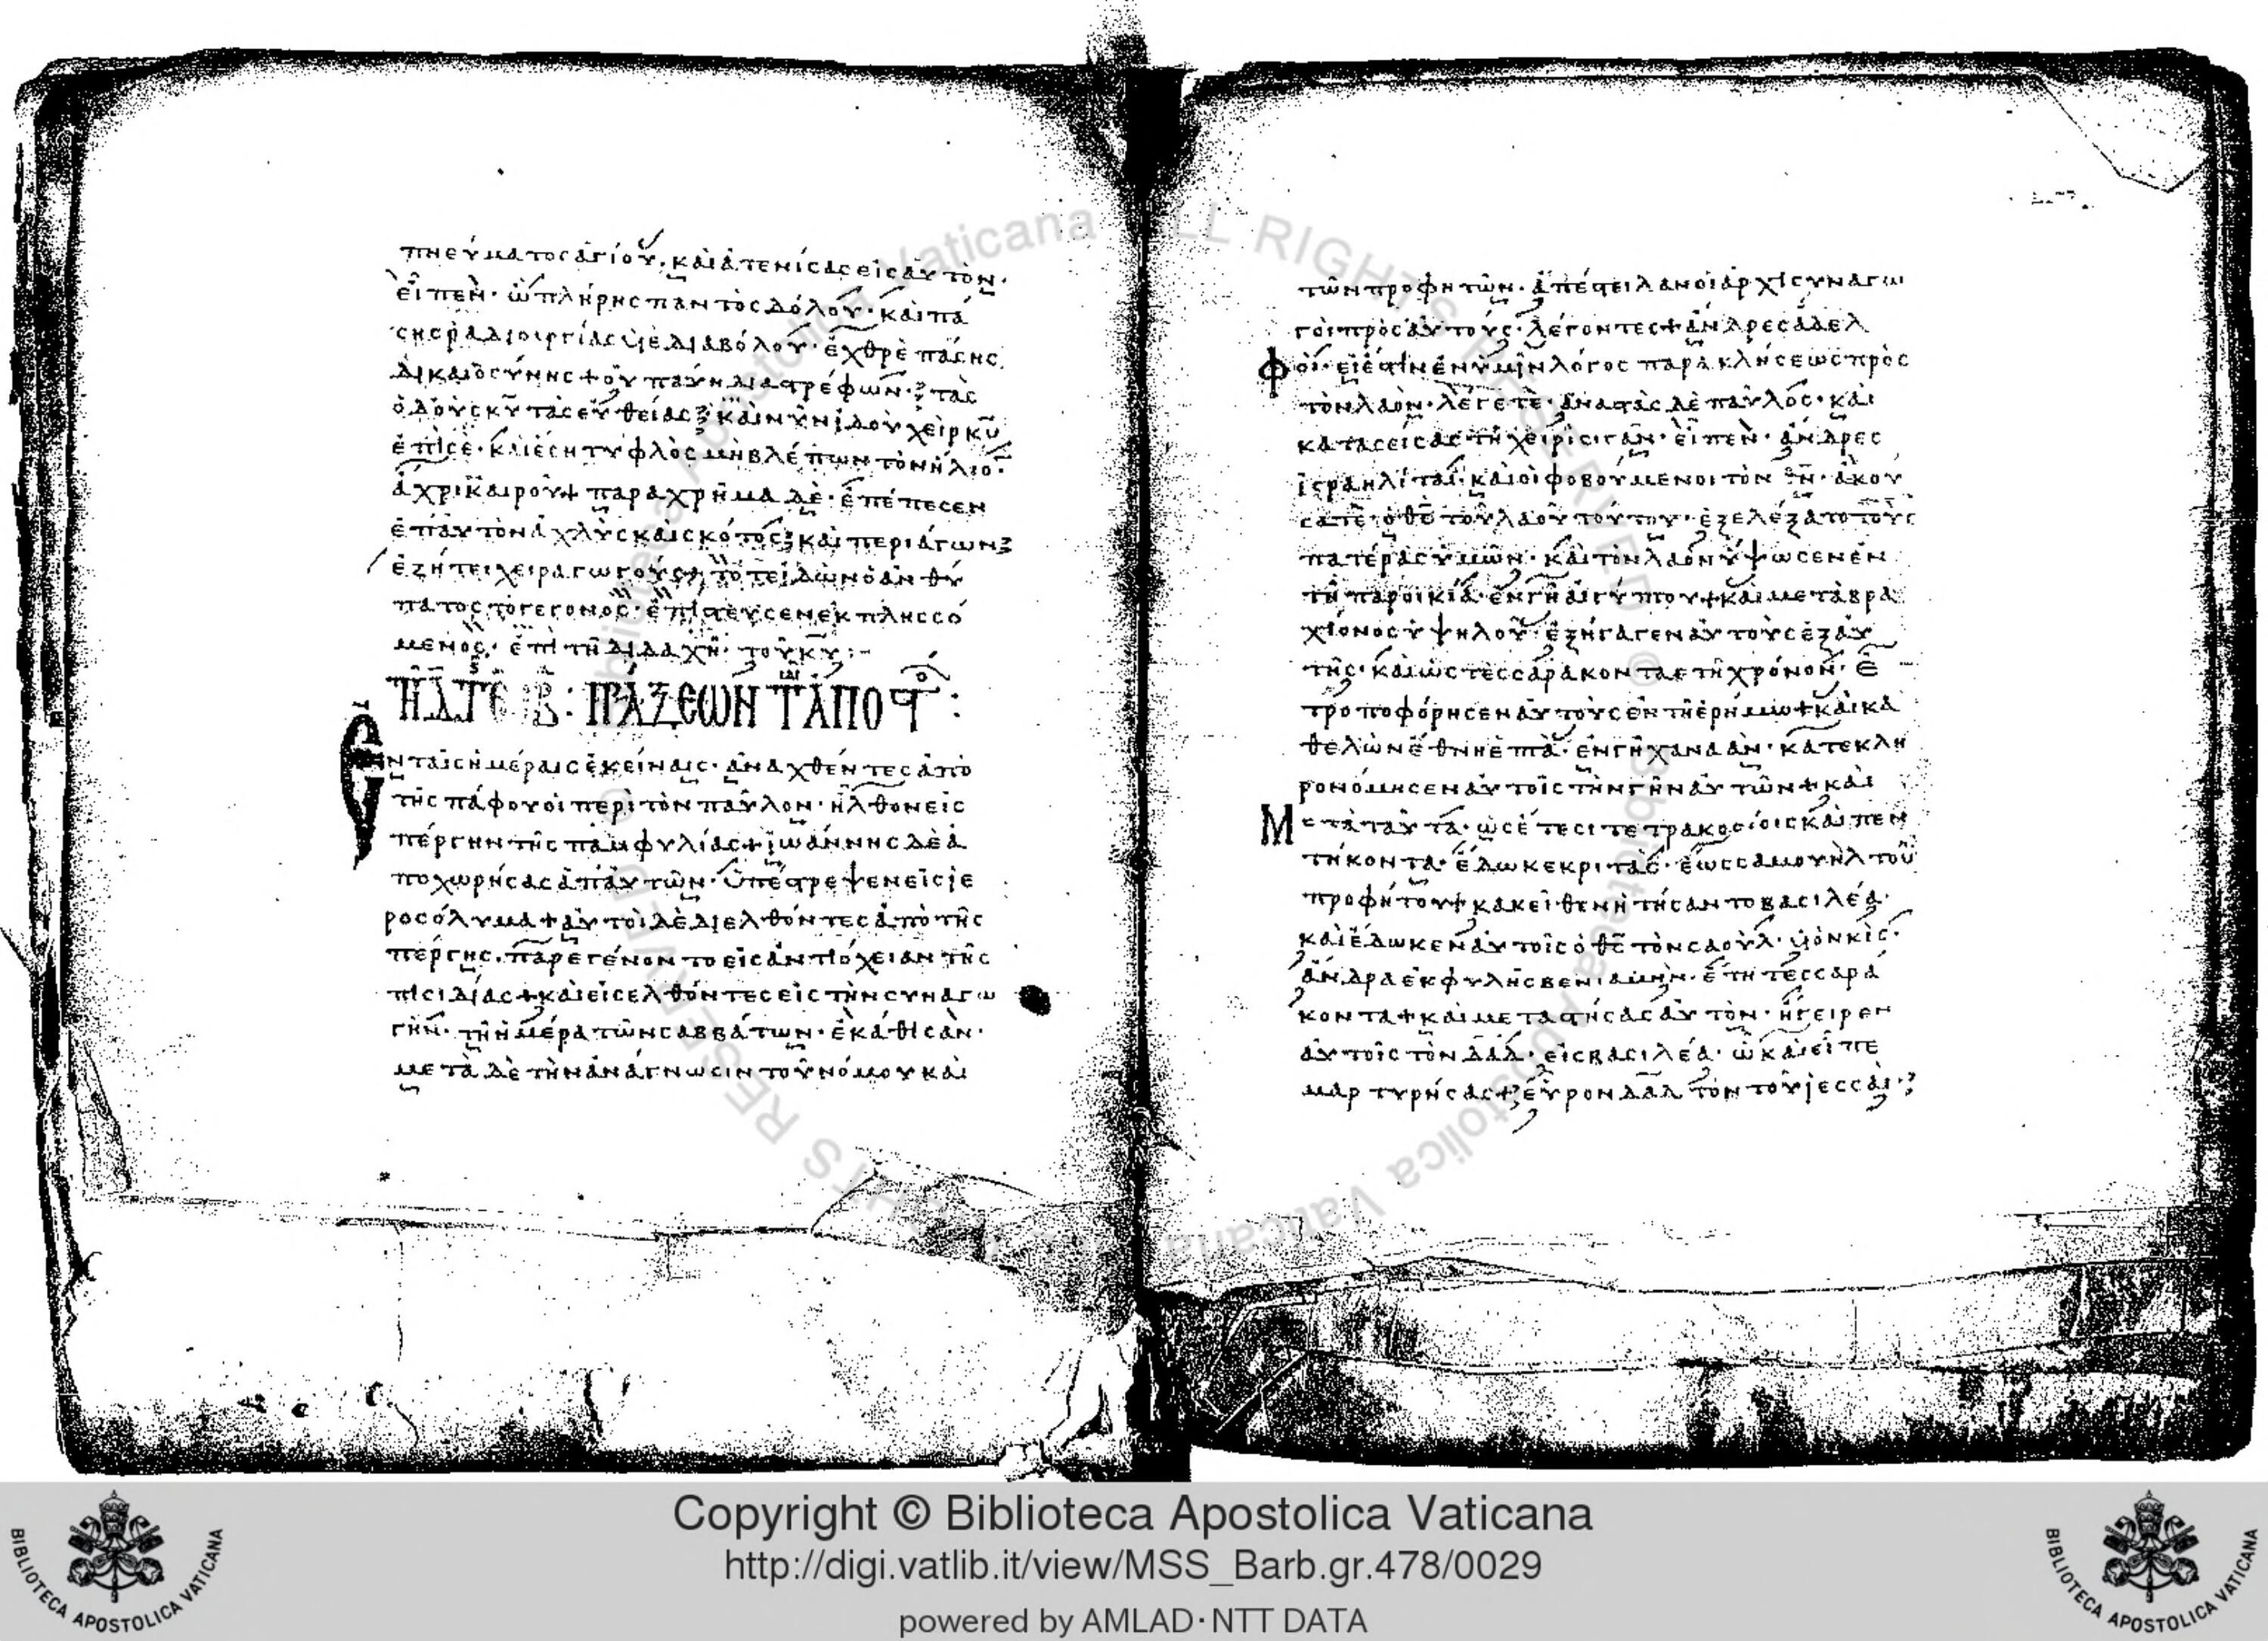 πνεύματος ἁγίου. καὶ ἀτενίσας εἰς αὐτὸν·
εἶπεν· ὦ πλήρης παντὸς δόλου· καὶ πά
σης ῥαδιουργίας υἱὲ διαβόλου· ἐχθρὲ πάσης
δικαιοσύνης + οὐ παύη διαστρέφων· τὰς
ὁδοὺς κυ τὰς εὐθείας· καὶ νῦν ἰδοὺ χεὶρ κυ
ἐπὶ σὲ· καὶ ἔση τυφλὸς μὴ βλέπων τὸν ἥλιον·
ἄχρι καιροῦ + παραχρῆμα δὲ· ἐπέπεσεν
ἐπ' αὐτὸν ἀχλὺς καὶ σκότος· καὶ περιάγων
ἐζήτει χειραγωγούς· τότε ἰδὼν ὁ ἀνθύ
πατος τὸ γεγονὸς· ἐπίστευσεν ἐκπλησσό
μενος· ἐπὶ τῆ διδαχῆ· τοῦ κυ :-
ἐν ταῖς ἡμέραις ἐκείναις· ἀναχθέντες ἀπὸ
τῆς πάφου οἱ περὶ τὸν παῦλον· ἦλθον εἰς
πέργην τῆς παμφυλίας + ἰωάννης δὲ ἀ
ποχωρήσας ἀπ' αὐτῶν· ὑπέστρεψεν εἰς ἱε
ροσόλυμα + αὐτοὶ δὲ διελθόντες ἀπὸ τῆς
πέργης· παρεγένοντο εἰς ἀντιόχειαν τῆς
πισιδίας + καὶ εἰσελθόντες εἰς τὴν συναγω
γὴν· τῆ ἡμέρα τῶν σαββάτων· ἐκάθισαν·
μετὰ δὲ τὴν ἀνάγνωσιν τοῦ νόμου καὶ
τῶν προφητῶν· ἀπέστειλαν οἱ ἀρχισυναγω
γοι πρὸς αὐτούς· λέγοντες + ἄνδρες ἀδελ
φοί· εἰ ἔστιν ἐν ὑμῖν λόγος παρακλήσεως πρὸς
τὸν λαὸν· λέγετε· ἀναστὰς δὲ παῦλος· καὶ
κατασείσας τῆ χειρὶ σιγᾶν· εἶπεν· ἄνδρες
ἰσραηλίται· καὶ οἱ φοβούμενοι τὸν θν· ἀκού
σατε· ὁ θς τοῦ λαοῦ τούτου· ἐξελέξατο τοὺς
πατέρας ὑμῶν· καὶ τὸν λαὸν ὕψωσεν ἐν
τῆ παροικία· ἐν γῆ αἰγύπτου + καὶ μετὰ βρα
χίονος ὑψηλοῦ· ἐξήγαγεν αὐτοὺς ἐξ αὐ
τῆς· καὶ ὡς τεσσαρακονταετῆ χρόνον· ἐ
τροποφόρησεν αὐτοὺς ἐν τῆ ἐρήμω + καὶ κα
θελὼν ἔθνη ἑπτὰ· ἐν γῆ χαναὰν· κατεκλη
ρονόμησεν αὐτοῖς τὴν γῆν αὐτῶν + καὶ
μετὰ ταῦτα· ὡς ἔτεσι τετρακοσίοις καὶ πεν
τήκοντα· ἔδωκε κριτὰς· ἕως σαμουὴλ τοῦ
προφήτου + κακεῖθεν ἠτήσαντο βασιλέα·
καὶ ἔδωκεν αὐτοῖς ὁ θς τὸν σαοὺλ· υἱὸν κὶς·
ἄνδρα ἐκ φυλῆς βενιαμὴν· ἔτη τεσσαρά
κοντα + καὶ μεταστήσας αὐτὸν· ἤγειρεν
αὐτοῖς τὸν δαδ· εἰς βασιλέα· ὧ καὶ εἶπε
μαρτυρήσας + εὗρον δαδ τὸν τοῦ ἰεσσαί·
Copyright © Biblioteca Apostolica Vaticana
http://digi.vatlib.it/view/MSS_Barb.gr.478/0029
powered by AMLAD·NTT DATA
BIBLIOTECA APOSTOLICA VATICANA
BIBLIOTECA APOSTOLICA VATICANA